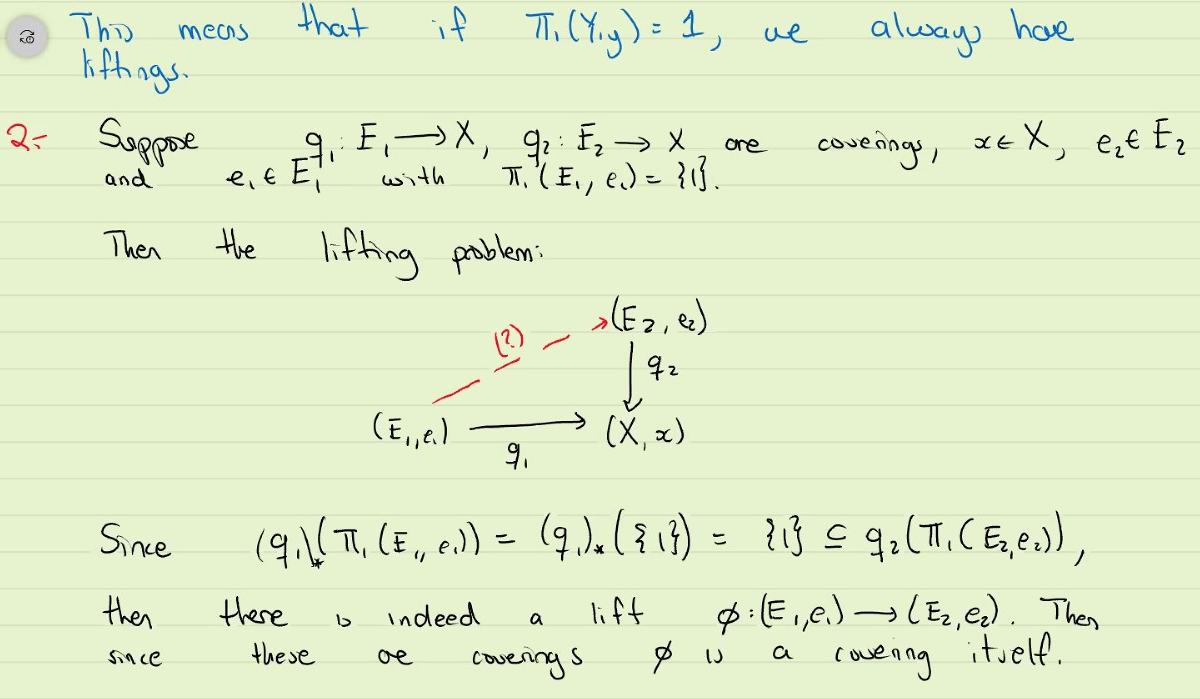 This means that if π₁(Y,y) = 1, we always have
liftings.
2.- Suppose q₁: E₁ → X, q₂: E₂ → X are coverings, x ∈ X, e₂ ∈ E₂
and e₁ ∈ E₁ with π₁(E₁, e₁) = {1}.
Then the lifting problem:
(?) (E₂, e₂)
q₂
(E₁, e₁) → (X, x)
q₁
Since (q₁)⁎(π₁(E₁, e₁)) = (q₁)⁎({1}) = {1} ⊆ q₂(π₁(E₂, e₂)),
then there is indeed a lift ϕ: (E₁, e₁) → (E₂, e₂). Then
since these are coverings ϕ is a covering itself.